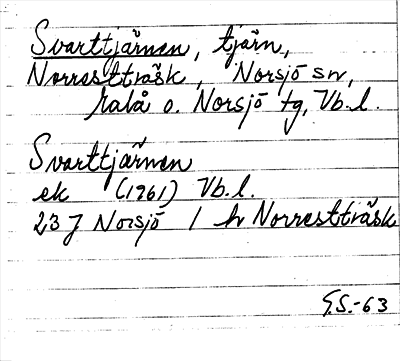 Svarttjärnen, tjärn,
Norrestträsk, Norsjö sn,
Malå o. Norsjö tg, Vb.l.
Svarttjärnen
ek (1961) Vb.l.
23 J Norsjö / hr Norrestträsk
G.S.-63